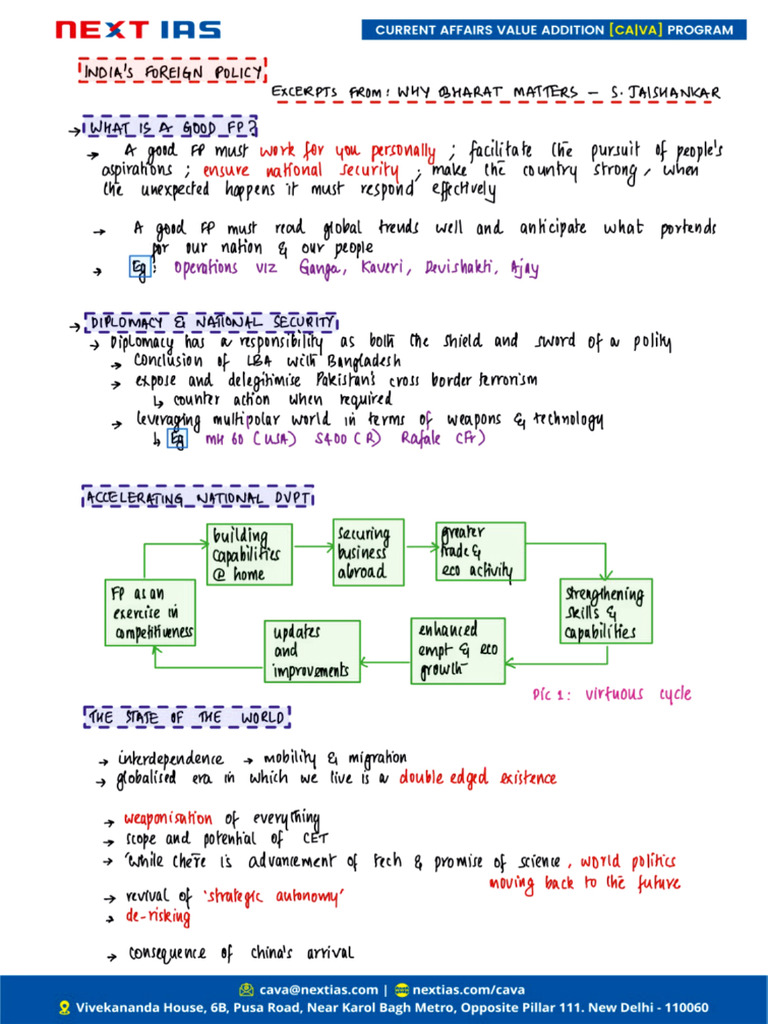 NEXT IAS
CURRENT AFFAIRS VALUE ADDITION [CA|VA] PROGRAM
INDIA'S FOREIGN POLICY
EXCERPTS FROM: WHY BHARAT MATTERS – S. JAISHANKAR
→ WHAT IS A GOOD FP?
→ A good FP must work for you personally ; facilitate the pursuit of people's
aspirations ; ensure national security ; make the country strong, when
the unexpected happens it must respond effectively
→ A good FP must read global trends well and anticipate what portends
for our nation & our people
→ Eg: Operations viz Ganga, Kaveri, Devishakti, Ajay
→ DIPLOMACY & NATIONAL SECURITY
→ Diplomacy has a responsibility as both the shield and sword of a polity
→ Conclusion of LBA with Bangladesh
→ expose and delegitimise Pakistan's cross border terrorism
↳ counter action when required
→ leveraging multipolar world in terms of weapons & technology
↳ Eg MH 60 (USA) S400 (R) Rafale (Fr)
ACCELERATING NATIONAL DVPT
building
capabilities
@ home
securing
business
abroad
greater
trade &
eco activity
strengthening
skills &
capabilities
enhanced
empt & eco
growth
updates
and
improvements
FP as an
exercise in
competitiveness
Pic 1: virtuous cycle
THE STATE OF THE WORLD
→ interdependence → mobility & migration
→ globalised era in which we live is a double edged existence
→ weaponisation of everything
→ scope and potential of CET
→ 'While there is advancement of tech & promise of science, world politics
moving back to the future
→ revival of 'strategic autonomy'
→ de-risking
→ consequence of china's arrival
cava@nextias.com | nextias.com/cava
Vivekananda House, 6B, Pusa Road, Near Karol Bagh Metro, Opposite Pillar 111. New Delhi - 110060